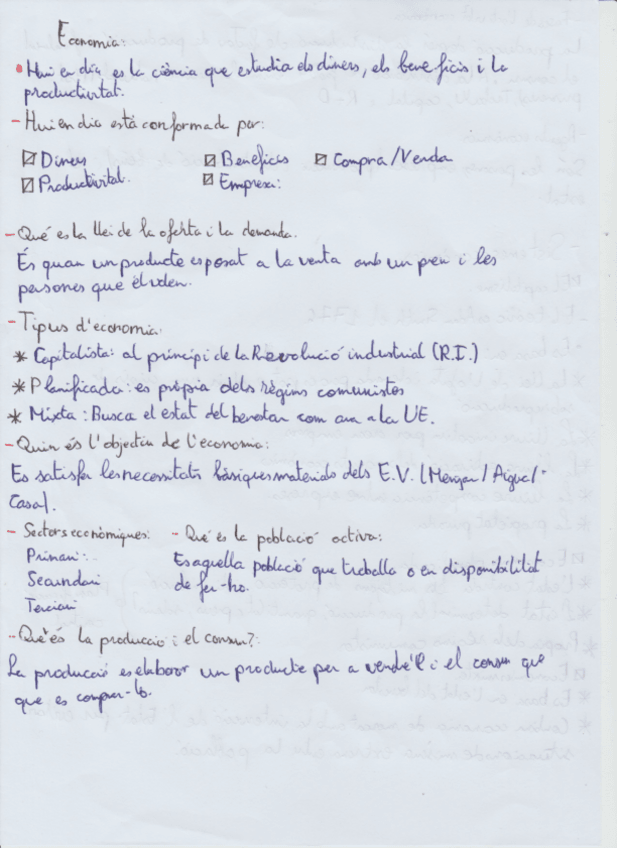 Economia:
Hui en día es la ciència que estudia els diners, els beneficis i la
productivitat.
- Hui en dia està conformada per:
Diners Beneficis Compra/Venda
Productivitat. Empresa:
- Qué es la llei de la oferta i la demanda.
És quan un producte es posat a la venta amb un preu i les
persones que él volen.
- Tipus d'economia:
* Capitalista: al principi de la Revolució industrial (R.I.)
* Planificada: es pròpia dels règims comunistes
* Mixta: Busca el estat del benestar com ara a la UE.
- Quin és l'objectiu de l'economia:
Es satisfer les necessitats bàsiques materials dels E.V. (Menjar/Aigua/-
Casa).
- Sectors econòmiques: - Qué es la població activa:
Primari: Es aquella població que treballa o en disponibilitat
Secundari de fer-ho.
Terciari
- Qué és la producció i el consum?:
La producció es elaborar un producte per a vendre'l i el consum que
que es comprar-lo.